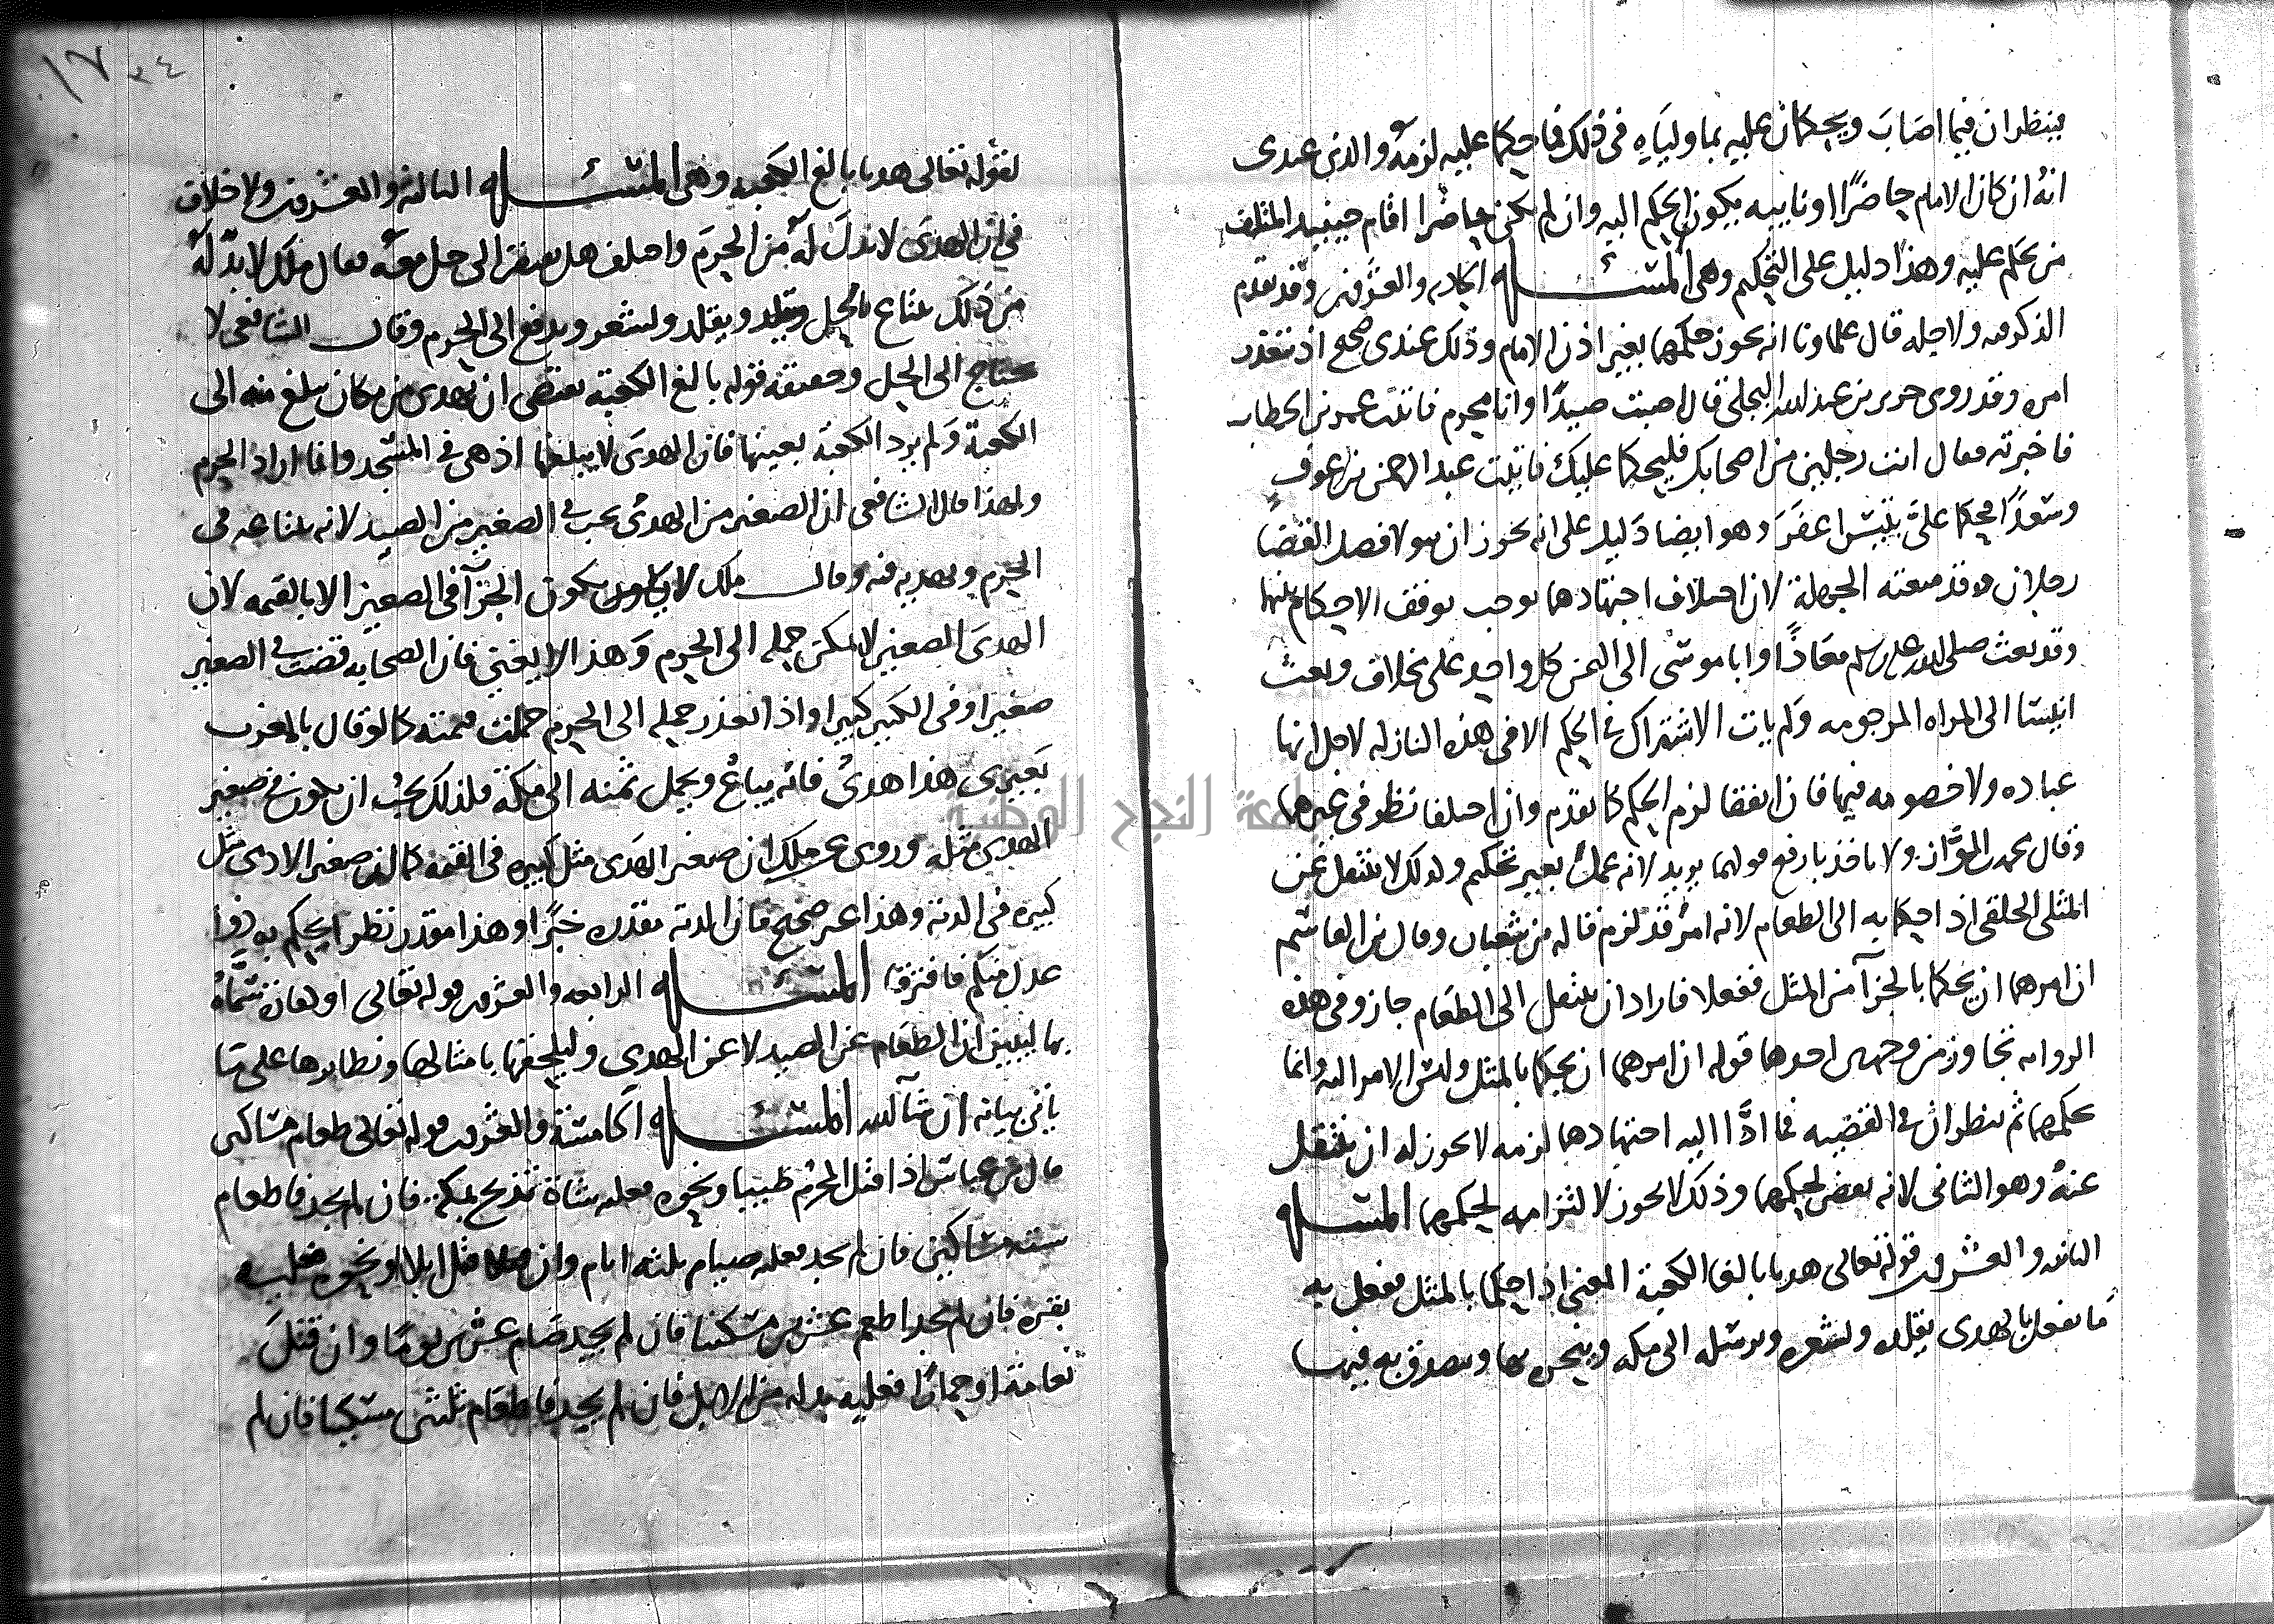 ينظران فيما اصاب ويحكمان عليه بما ولياه في ذلك فما حكما عليه لزمه والذي عندي
انه ان كان الامام حاضرا او نايبه يكون الحكم اليه وان لم يكن حاضرا اقام حينئذ المتلف
من يحكم عليه وهذا دليل على التحكيم وهي المسئله الحاديه والعشرون وقد تقدم
الذكر فيه ولاجله قال علماونا انه يجوز حكمهما بغير اذن الامام وذلك عندي صحيح اذ يتعذر
امره وقد روى جرير بن عبد الله البجلي قال اصبت صيدا وانا محرم فاتيت عمر بن الخطاب
فاخبرته فقال ائت رجلين من اصحابك فليحكما عليك فاتيت عبد الرحمن بن عوف
وسعدا فحكما علي بتيس اعفر وهو ايضا دليل على انه يجوز ان يتولا فصل القضا
رجلان وقد منعته الجهلة لان اختلاف اجتهادهما يوجب توقف الاحكام بينهما
وقد بعث صلى الله عليه وسلم معاذا وابا موسى الى اليمن كل واحد على مخلاف وبعث
انيسا الى المراه المرجومه ولم يات الاشتراك في الحكم الا في هذه النازله لاجل انها
عباده ولا خصومه فيها فان اتفقا لزم الحكم كما تقدم وان اختلفا نظر في غيرهما
وقال محمد بن المواز ولا ياخذ بارفع قولهما يريد لانه عمل بغير تحكيم وكذلك لا ينتقل عن
المثلي الخلقي اذا حكما به الى الطعام لانه امر قد لزم قاله بن شعبان وقال بن القاسم
ان امرهما ان يحكما بالجزآ من المثل ففعلا فاراد ان ينتقل الى الطعام جاز وفي هذه
الروايه تجاوز من وجهين احدهما قوله ان امرهما ان يحكما بالمثل وليس الامر اليه وانما
يحكمهما ثم ينظران في القضيه فما ادا اليه اجتهادهما لزمه لا يجوز له ان ينتقل
عنه وهو الثاني لانه نقض لحكمهما وذلك لا يجوز لالتزامه لحكمهما المسئله
الثانيه والعشرون قوله تعالى هديا بالغ الكعبة المعنى اذا حكما بالمثل يفعل به
ما يفعل بالهدي يقلده ويشعره ويرسله الى مكه وينحره بها ويتصدق به فيها
لقوله تعالى هديا بالغ الكعبه وهي المسئله الثالثه والعشرون ولا خلاف
في ان الهدي لا بد له من الحرم واختلف هل يفتقر الى حل معه فقال ملك لا بد له
من ذلك يبتاع بالحل ويقلد ويشعر ويدفع الى الحرم وقال الشافعي لا
يحتاج الى الحل وحقيقة قوله بالغ الكعبة يقتضي ان يهدي من مكان يبلغ منه الى
الكعبة ولم يرد الكعبة بعينها فان الهدي لا يبلغها اذ هي في المسجد وانما اراد الحرم
ولهذا قال الشافعي ان الصغير من الهدي يجب في الصغير من الصيد لانه يبتاعه في
الحرم ويهديه فيه وقال ملك لا يكون الجزآ في الصغير الا بالقيمه لان
الهدي الصغير لا يمكن حمله الى الحرم وهذا لا يغني فان الصحابه قضت في الصغير
صغيرا وفي الكبير كبيرا واذا تعذر حمله الى الحرم حملت قيمته كما لو قال بالمغرب
بعيري هذا هدي فانه يباع ويحمل ثمنه الى مكة فلذلك يجب ان يكون في صغير
الهدي مثله وروي عن ملك ان صغير الهدي مثل كبيره في القيمة كما ان صغير الادمي مثل
كبيره في الدية وهذا غير صحيح فان الدية مقدره خبرا وهذا مقدر نظرا يحكم به ذوا
عدل منكم فافترقا المسئله الرابعه والعشرون قوله تعالى او كفارة سماه
بها ليبين ان الطعام عن الصيد لا عن الهدي وليلحقها بامثالها ونظايرها على ما
ياتي بيانه ان شآ الله المسئله الخامسة والعشرون قوله تعالى طعام مساكين
قال بن عباس اذا قتل المحرم ظبيا ونحوه فعليه شاة تذبح بمكه فان لم يجد فاطعام
سته مساكين فان لم يجد فعليه صيام ثلثه ايام وان قتل ايلا او نحوه فعليه
بقره فان لم يجد اطعم عشرين مسكينا فان لم يجد صام عشرين يوما وان قتل
نعامة او حمارا فعليه بدنه من الابل فان لم يجد فاطعام ثلثين مسكينا فان لم
جامعة النجاح الوطنية